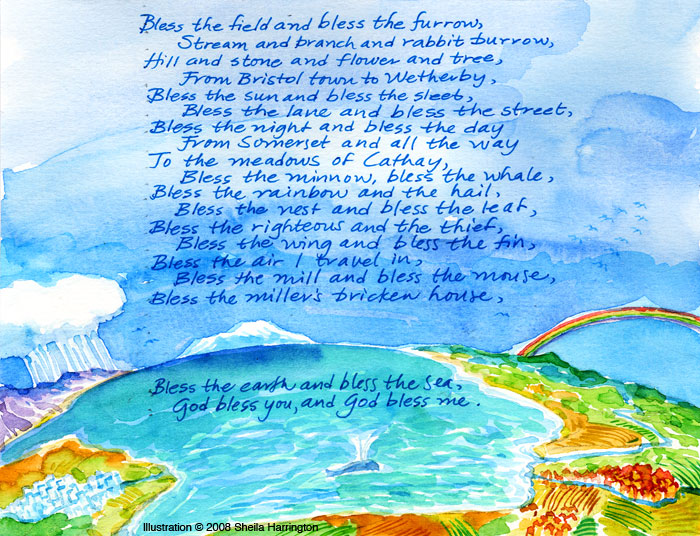 Bless the field and bless the furrow,
Stream and branch and rabbit burrow,
Hill and stone and flower and tree,
From Bristol town to Wetherby,
Bless the sun and bless the sleet,
Bless the lane and bless the street,
Bless the night and bless the day
From Somerset and all the way
To the meadows of Cathay,
Bless the minnow, bless the whale,
Bless the rainbow and the hail,
Bless the nest and bless the leaf,
Bless the righteous and the thief,
Bless the wing and bless the fin,
Bless the air I travel in,
Bless the mill and bless the mouse,
Bless the miller's bricken house,
Bless the earth and bless the sea,
God bless you, and God bless me.
Illustration © 2008 Sheila Harrington